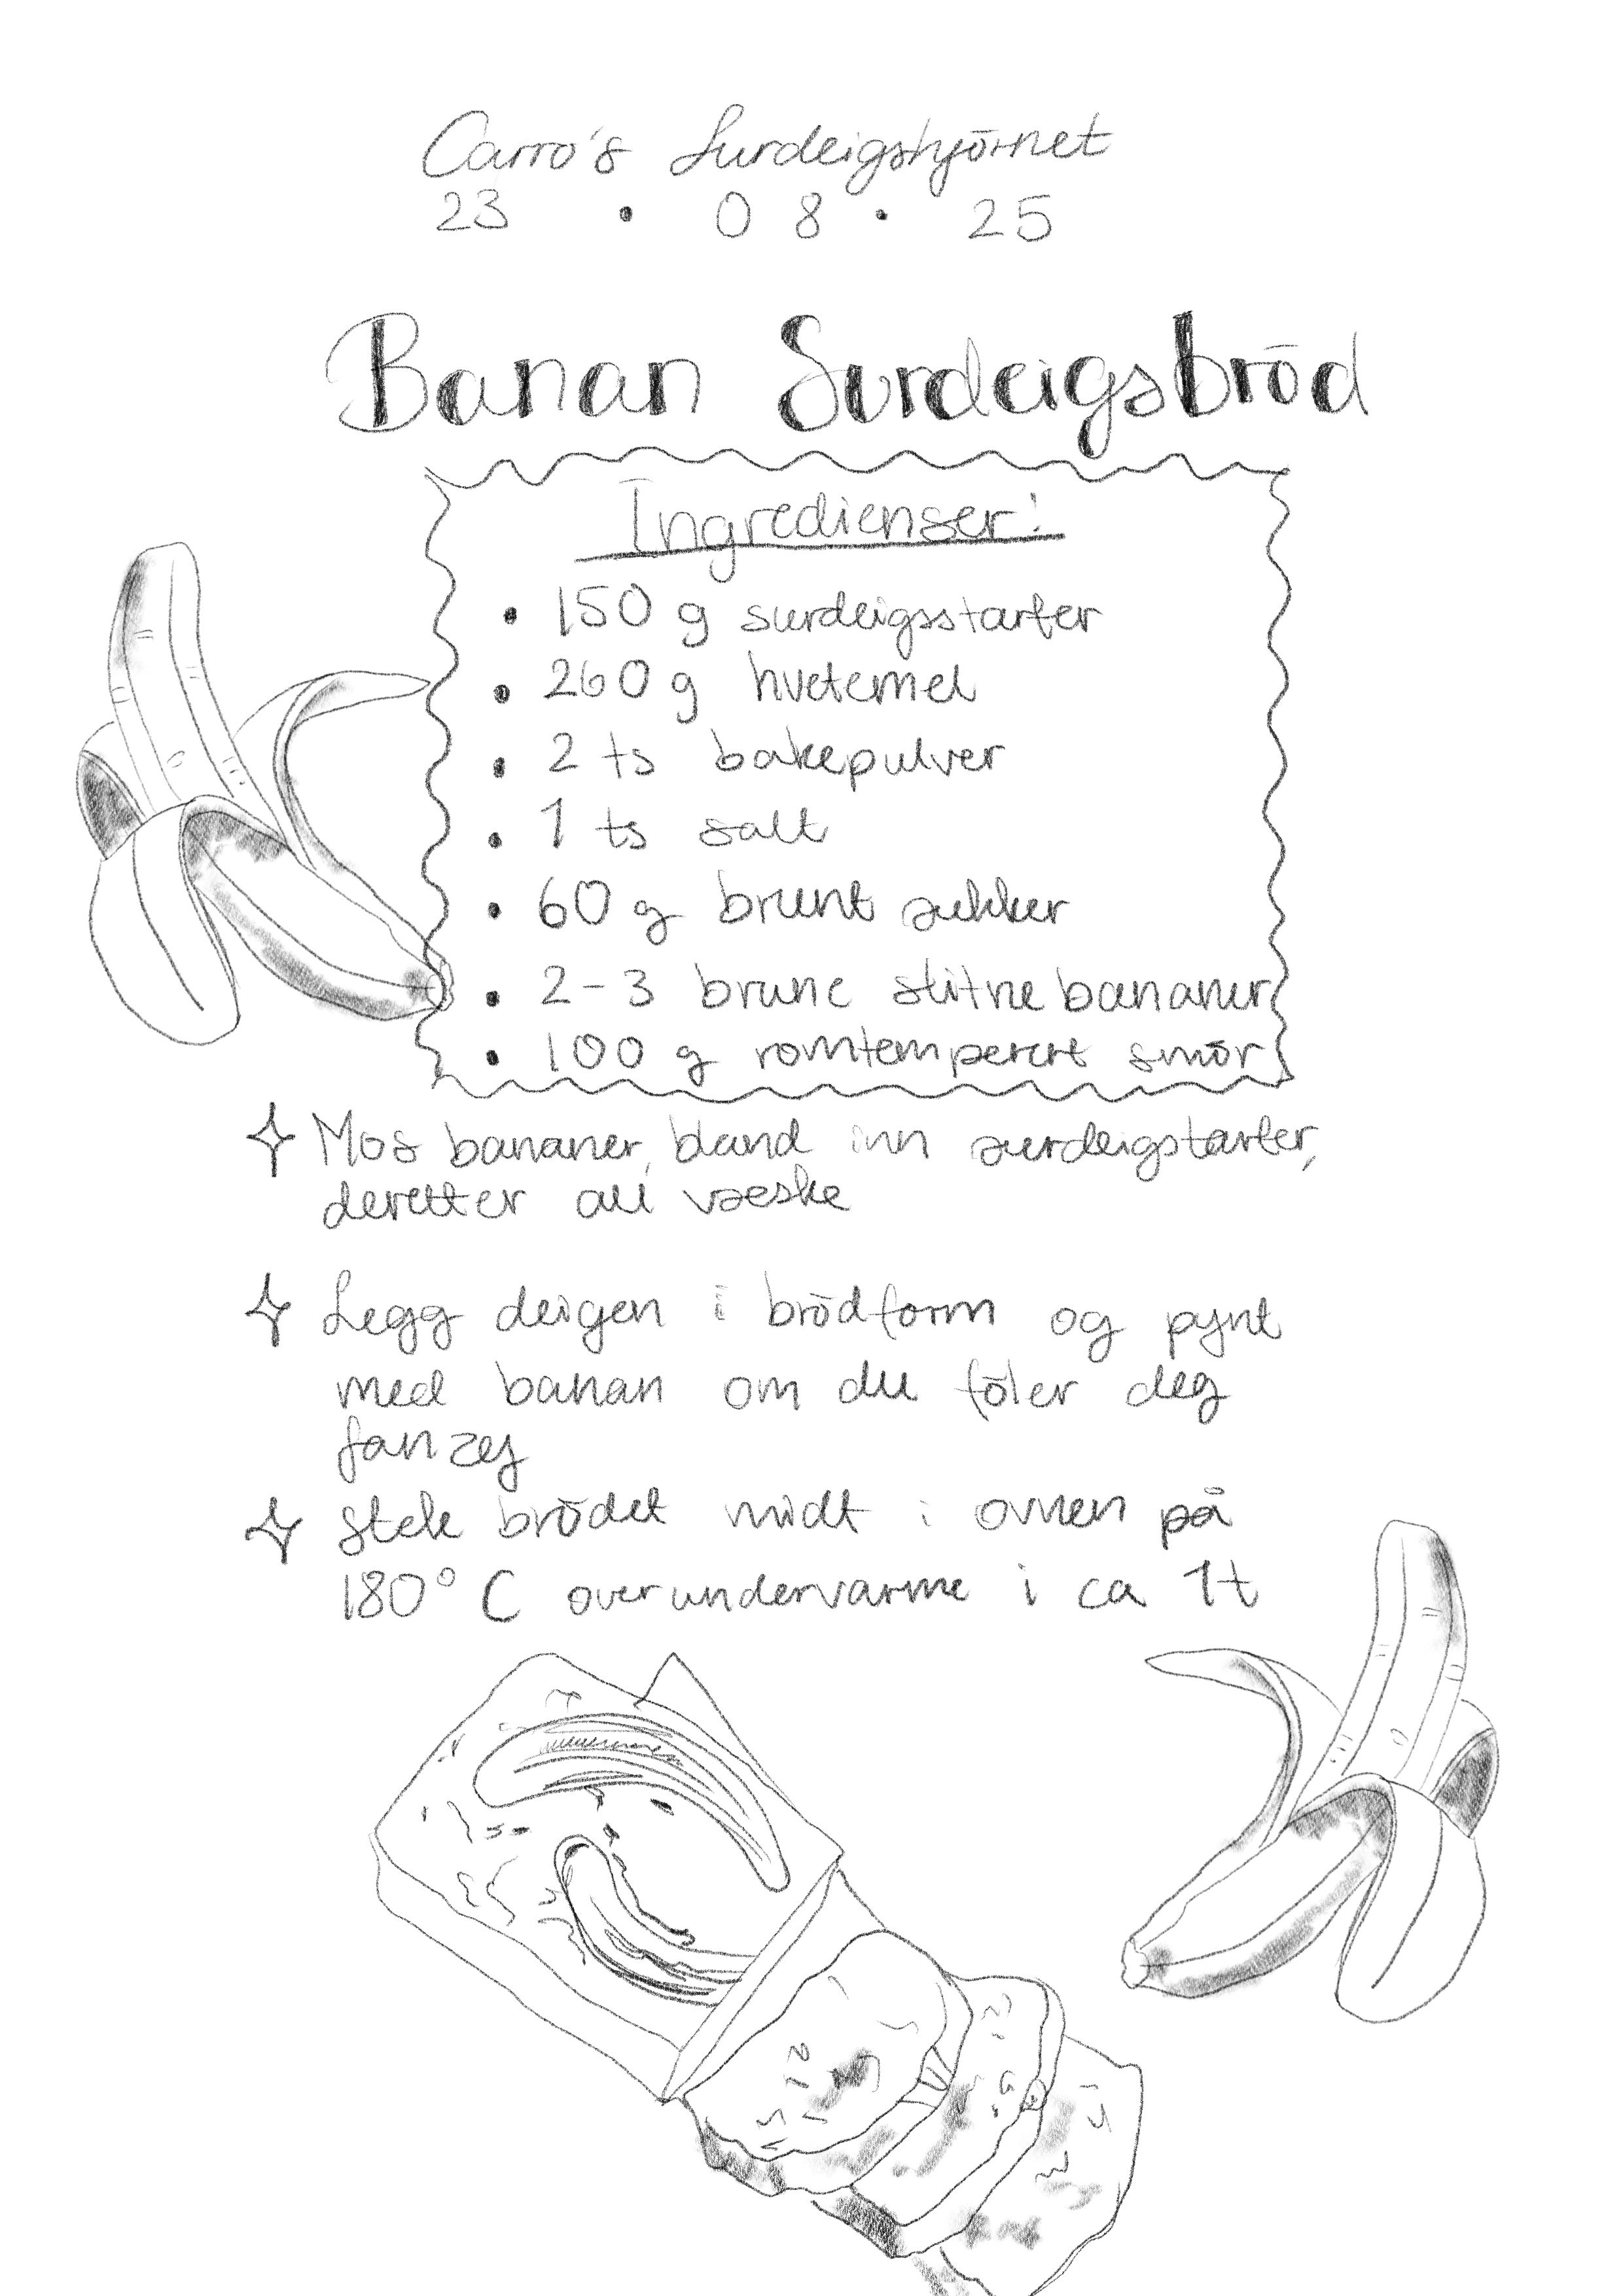 Carro's Surdeigshjörnet
23 • 08 • 25
Banan Surdeigsbröd
Ingredienser:
• 150 g surdeigsstarter
• 260 g hvetemel
• 2 ts bakepulver
• 1 ts salt
• 60 g brunt sukker
• 2-3 brune slitne bananer
• 100 g romtemperert smör
✧ Mos bananer, bland inn surdeigstarter,
deretter all væske
✧ Legg deigen i brödform og pynt
med banan om du föler deg
fanzey
✧ Stek brödet midt i ovnen på
180° C over undervarme i ca 1t